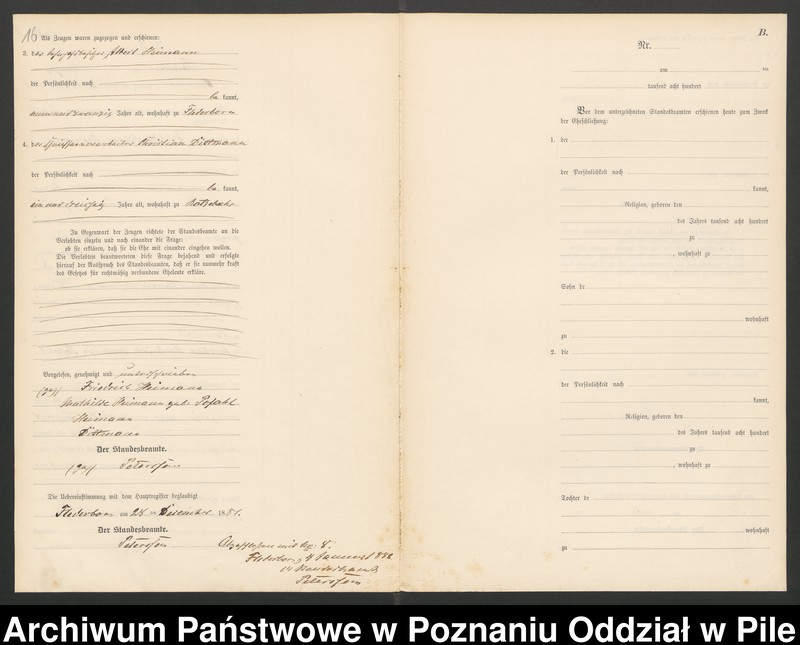 16
Als Zeugen waren zugezogen und erschienen:
3. der Albert Heimann
der Persönlichkeit nach
be kannt,
Jahre alt, wohnhaft zu Flederborn
4. der Christian Dittmann
der Persönlichkeit nach
be kannt,
ein und dreissig Jahre alt, wohnhaft zu
In Gegenwart der Zeugen richtete der Standesbeamte an die
Verlobten einzeln und nach einander die Frage:
ob sie erklären, daß sie die Ehe mit einander eingehen wollen.
Die Verlobten beantworteten diese Frage bejahend und erfolgte
hierauf der Ausspruch des Standesbeamten, daß er sie nunmehr kraft
des Gesetzes für rechtmäßig verbundene Eheleute erkläre.
Vorgelesen, genehmigt und unterschrieben
(gez) Friedrich Heimann
Mathilde Heimann geb. Pofahl
Heimann
Dittmann
Der Standesbeamte.
(gez) Petersen
Die Uebereinstimmung mit dem Hauptregister beglaubigt
Flederborn am 28 ten Dezember 1881.
Der Standesbeamte.
Petersen
Abgeschlossen mit No: 8.
Flederborn, 4 Januar 1882
Petersen
B.
Nr.
am ten
tausend acht hundert
Vor dem unterzeichneten Standesbeamten erschienen heute zum Zweck
der Eheschließung:
1. der
der Persönlichkeit nach
kannt,
Religion, geboren den
des Jahres tausend acht hundert
zu
, wohnhaft zu
Sohn de
wohnhaft
zu
2. die
der Persönlichkeit nach
kannt,
Religion, geboren den
des Jahres tausend acht hundert
zu
, wohnhaft zu
Tochter de
wohnhaft
zu
Archiwum Państwowe w Poznaniu Oddział w Pile